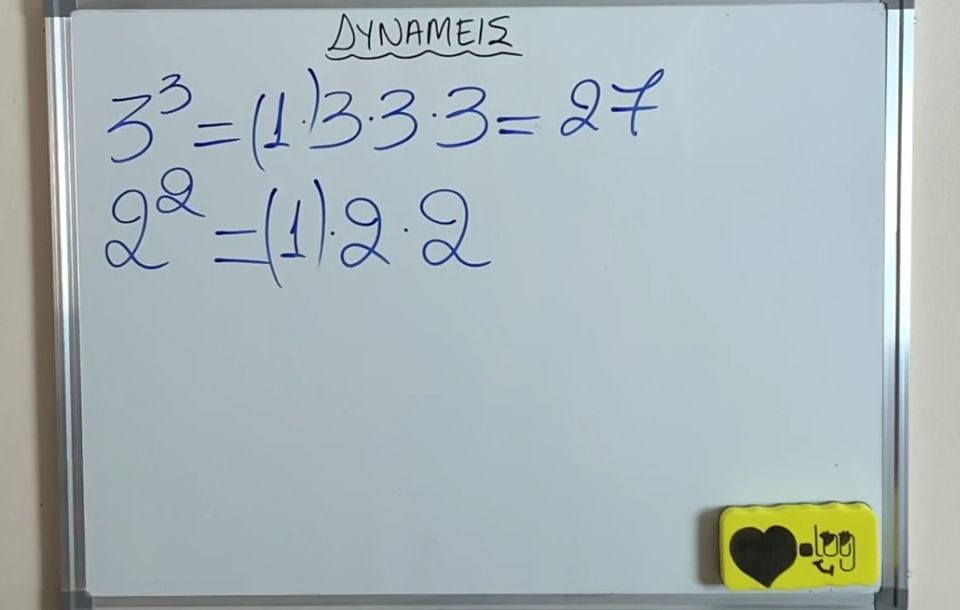 ΔΥΝΑΜΕΙΣ
3³ = (1·)3·3·3 = 27
2² = (1)·2·2